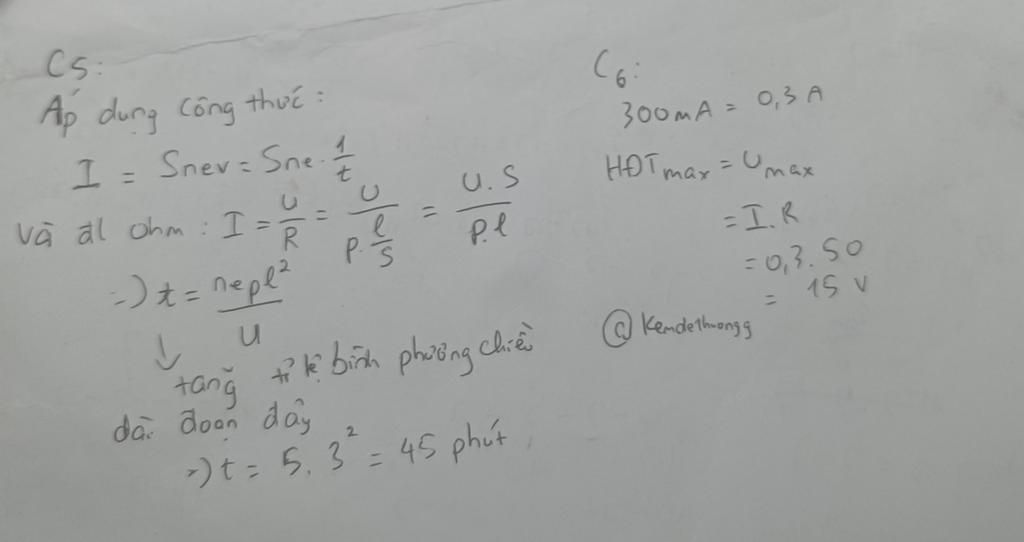 C5:
Áp dụng công thức:
I = Snev = Sne. 1/t
Và đl ohm : I = U/R = U/(ρ. l/S) = U.S/(ρ.l)
=) t = neρl²/U
↓
tăng tỉ lệ bình phương chiều
dài đoạn dây
=) t = 5. 3² = 45 phút
C6:
300mA = 0,3 A
HĐTmax = Umax
= I.R
= 0,3. 50
= 15 V
@Kemdethuongg